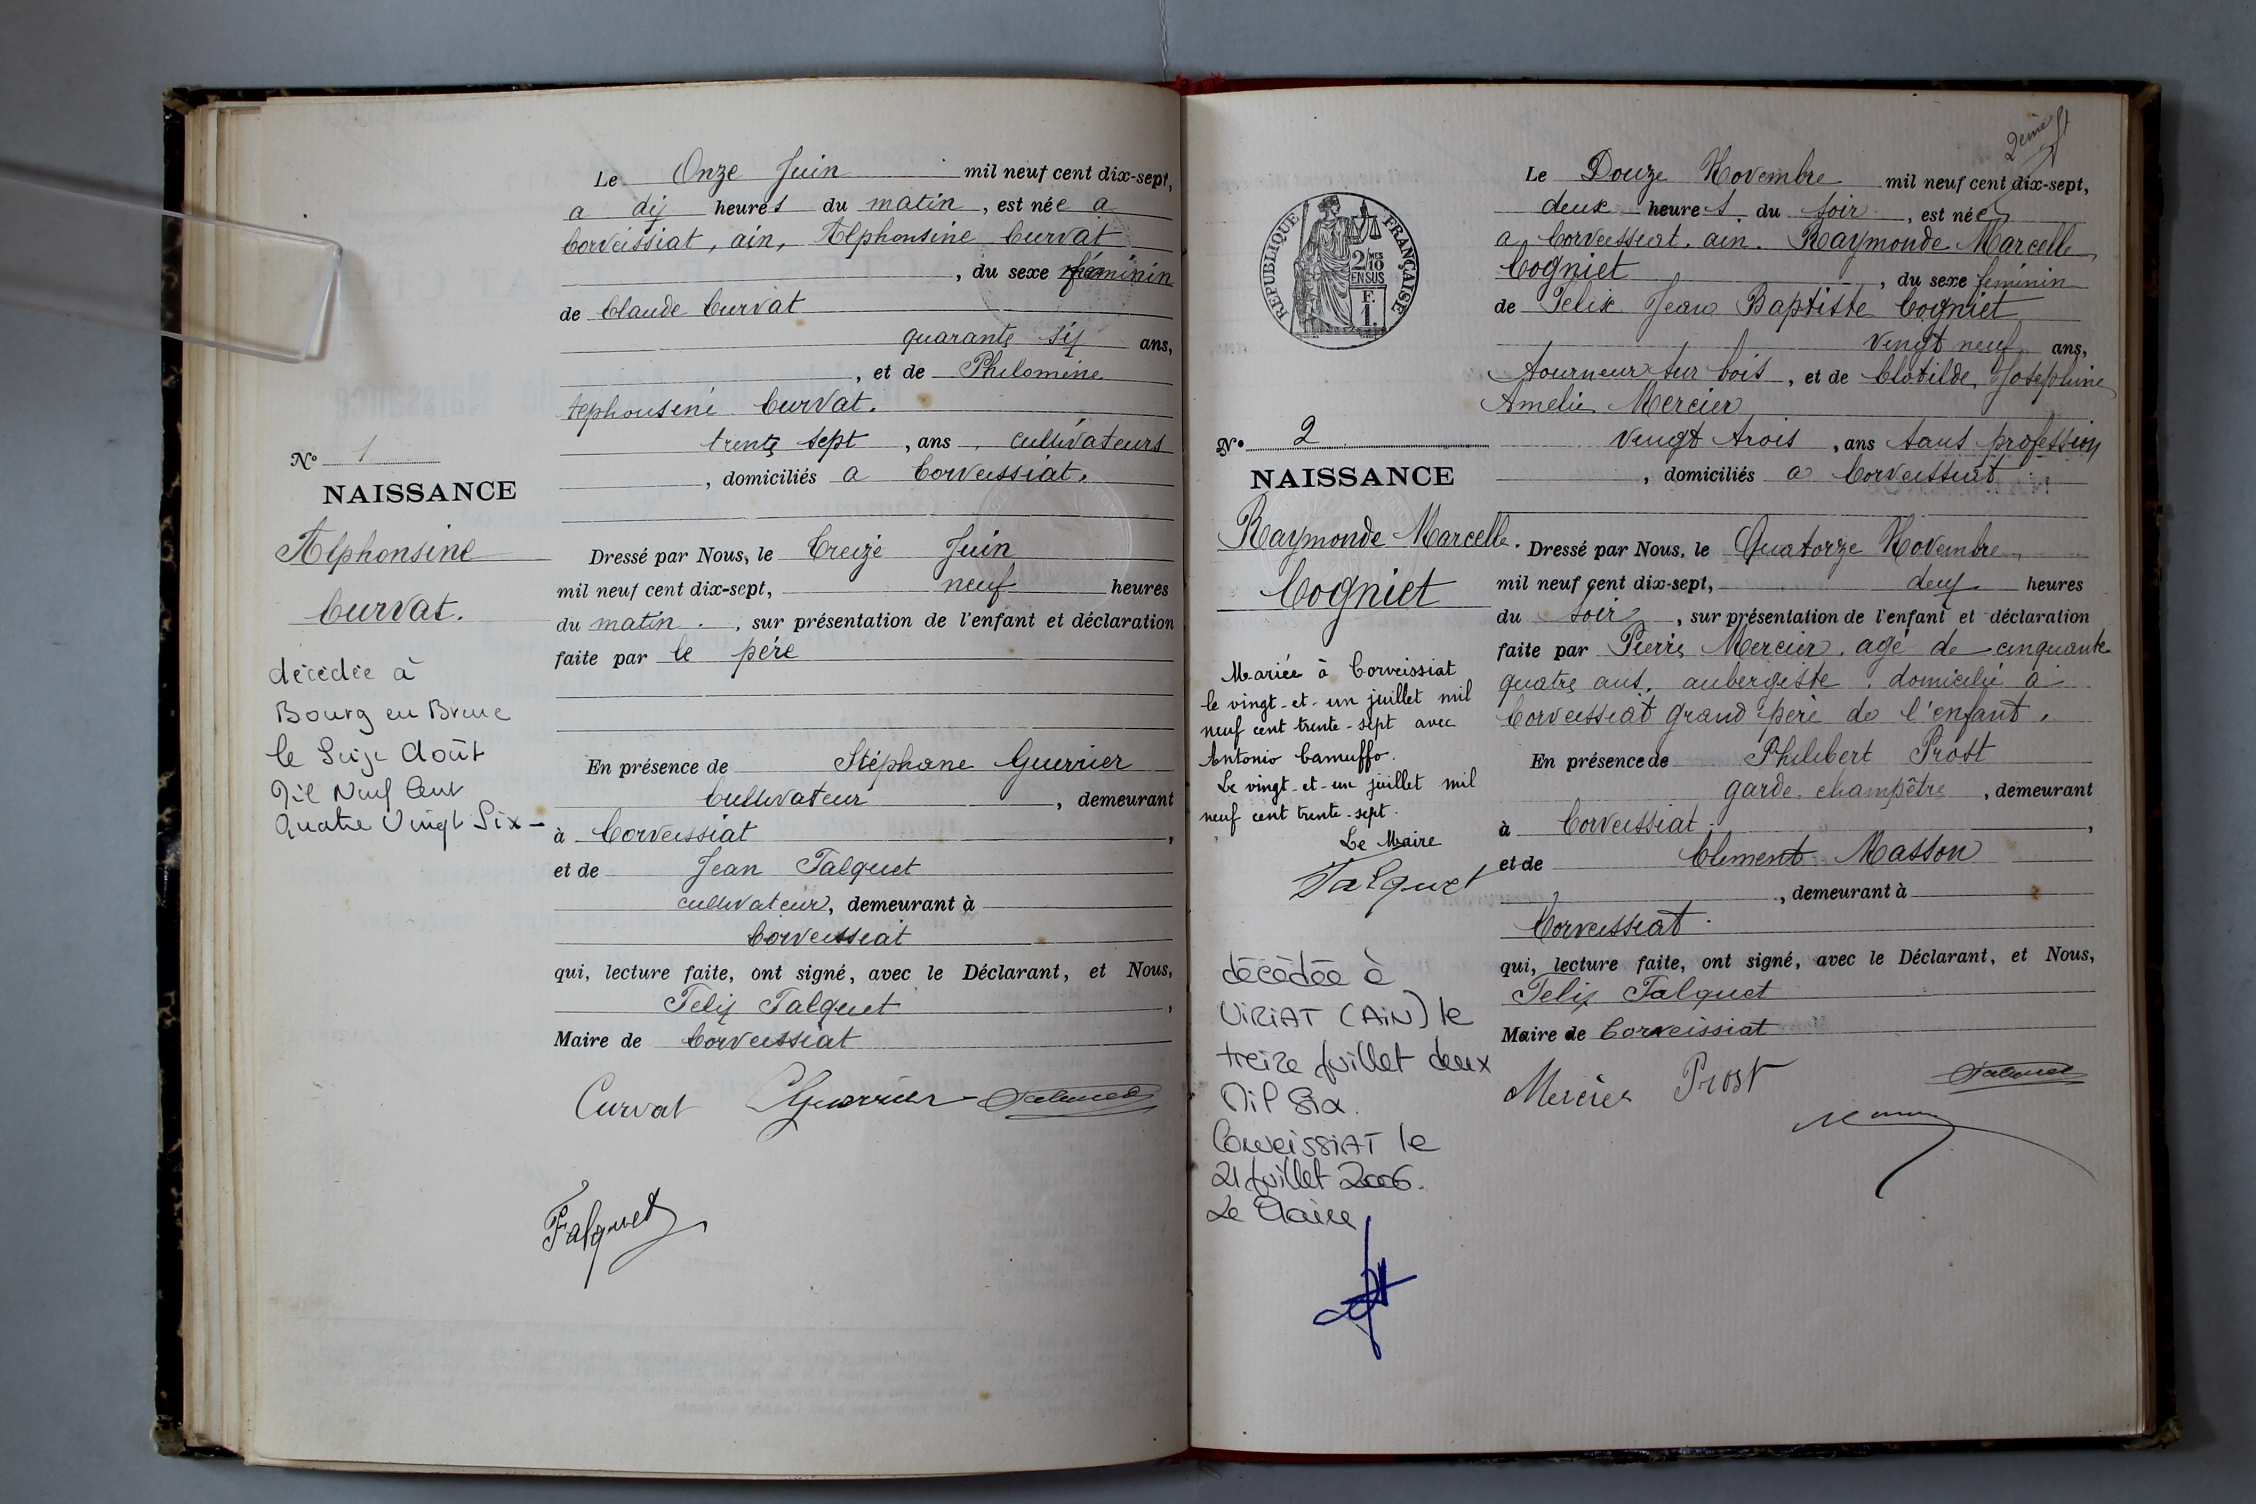 Le Onze Juin mil neuf cent dix-sept,
a dix heures du matin, est née a
Corveissiat, ain, Alphonsine Curvat
, du sexe féminin
de Claude Curvat
quarante six ans,
, et de Philomène
Alphonsine Curvat.
trente sept, ans, cultivateurs
, domiciliés a Corveissiat.
N° 1
NAISSANCE
Alphonsine
Curvat.
décédée à
Bourg en Bresse
le Seize Août
Mil Neuf Cent
Quatre Vingt Six -
Dressé par Nous, le Treize Juin
mil neuf cent dix-sept, neuf heures
du matin, sur présentation de l'enfant et déclaration
faite par le père
En présence de Stéphane Guerrier
Cultivateur, demeurant
à Corveissiat,
et de Jean Falquet
cultivateur, demeurant à
Corveissiat
qui, lecture faite, ont signé, avec le Déclarant, et Nous,
Felix Falquet,
Maire de Corveissiat
Curvat Guerrier Falquet
Falquet
2ème ft
RÉPUBLIQUE FRANÇAISE
2 MES
10
EN SUS
F.
1.
Le Douze Novembre mil neuf cent dix-sept,
deux heures du soir, est née
a Corveissiat. ain. Raymonde Marcelle
Cogniet, du sexe feminin
de Felix Jean Baptiste Cogniet
Vingt neuf ans,
tourneur sur bois, et de Clotilde, Josephine
Amelie Mercier
Vingt trois, ans sans profession
, domiciliés a Corveissiat
N° 2
NAISSANCE
Raymonde Marcelle.
Cogniet
Mariée à Corveissiat
le vingt-et-un juillet mil
neuf cent trente-sept avec
Antonio Camuffo.
Le vingt-et-un juillet mil
neuf cent trente-sept.
Le Maire
Falquet
décédée à
VIRIAT (AIN) le
treize juillet deux
Mil Six.
CorveissiAT le
21 juillet 2006.
Le Maire
Dressé par Nous, le Quatorze Novembre
mil neuf cent dix-sept, deux heures
du soir, sur présentation de l'enfant et déclaration
faite par Pierre Mercier. agé de cinquante
quatre ans, aubergiste. domicilié à
Corveissiat grand père de l'enfant.
En présence de Philibert Prost
garde champêtre, demeurant
à Corveissiat,
et de Clement Masson
, demeurant à
Corveissiat.
qui, lecture faite, ont signé, avec le Déclarant, et Nous,
Felix Falquet
Maire de Corveissiat
Mercier Prost Falquet